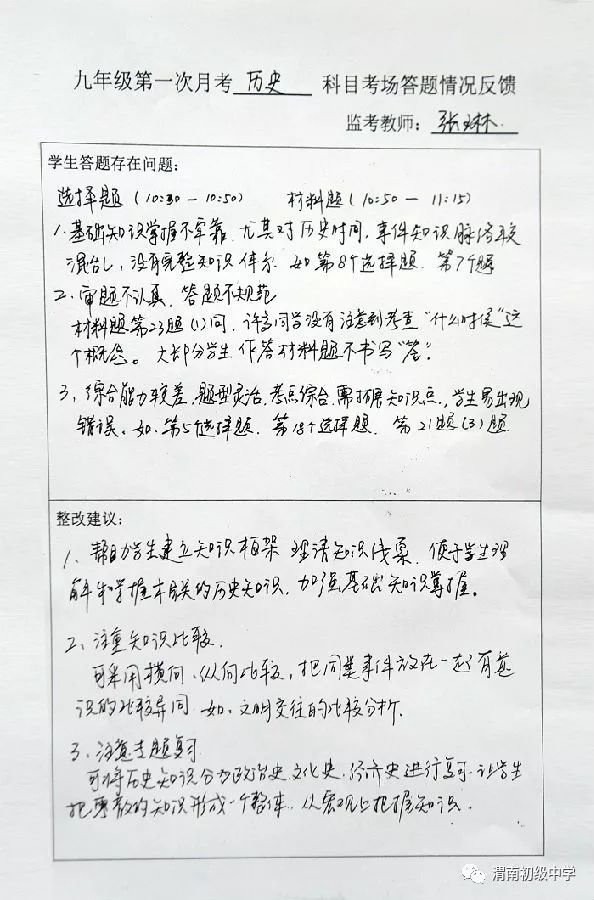 九年级第一次月考 历史 科目考场答题情况反馈
监考教师：张琳
学生答题存在问题：
选择题（10:30－10:50） 材料题（10:50－11:15）
1、基础知识掌握不牢靠，尤其对历史时间，事件知识脉络较
混乱，没有完整知识体系 如第8个选择题、第7个题
2、审题不认真，答题不规范
材料题第23题（1）问，许多同学没有注意到考查“什么时候”这
个概念。大部分学生作答材料题不书写“答”。
3、综合能力较差，题型灵活，考点综合，需拓展知识点，学生易出现
错误。如：第5个选择题、第18个选择题、第21题（3）题
整改建议：
1、帮助学生建立知识框架 理清知识线索，便于学生理
解和掌握相关的历史知识，加强基础知识掌握。
2、注重知识比较
可采用横向、纵向比较，把同类事件放在一起有意
识的比较异同 如：文明交往的比较分析。
3、注意专题复习
可将历史知识分为政治史、文化史、经济史进行复习 让学生
把零散的知识形成一个整体，从宏观上把握知识。
渭南初级中学